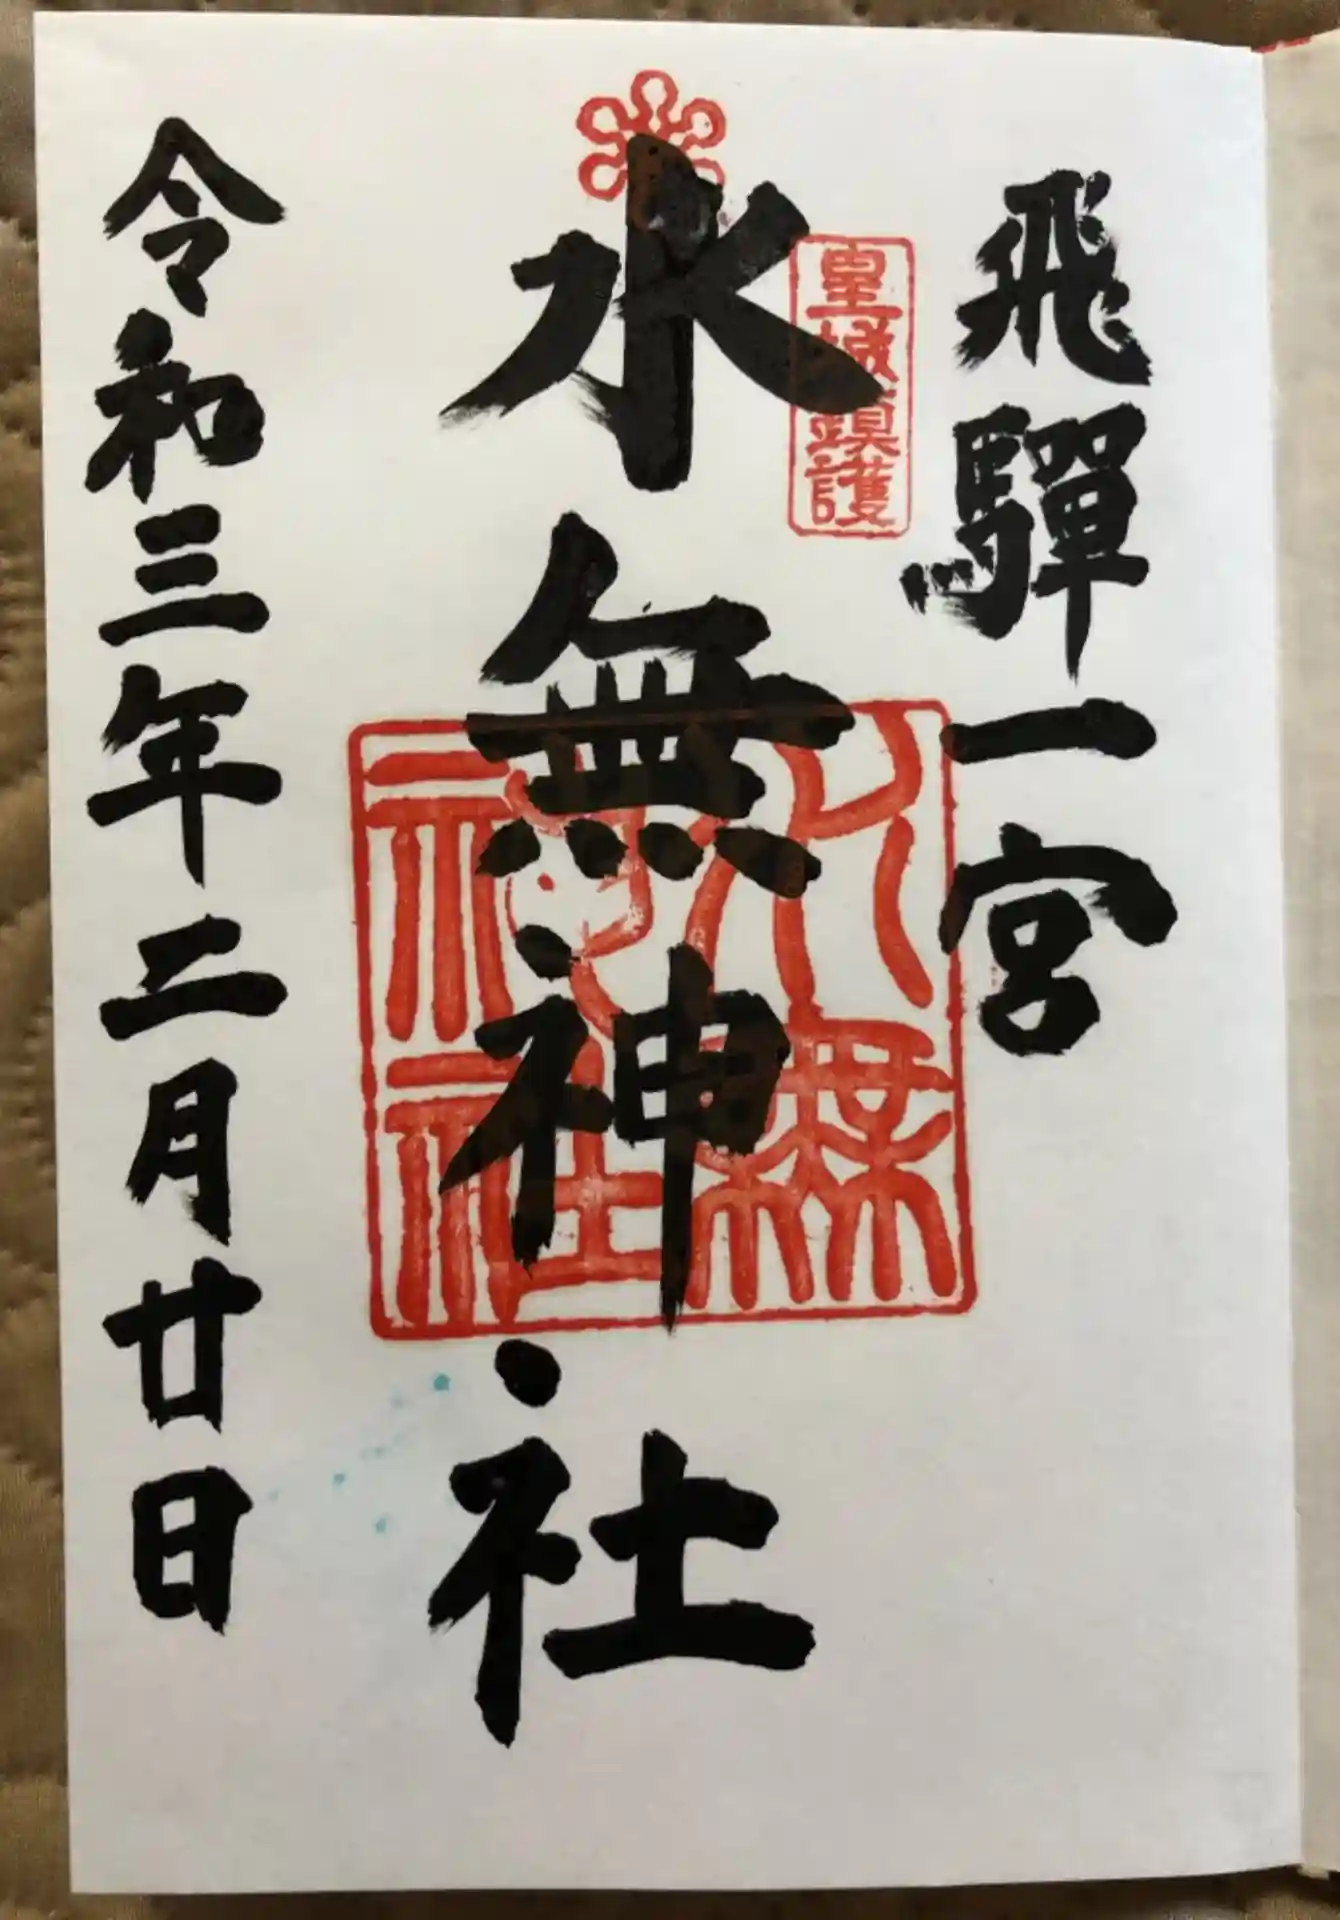 飛驒一宮
皇城鎮護
水無神社
水無神社
令和三年二月廿日